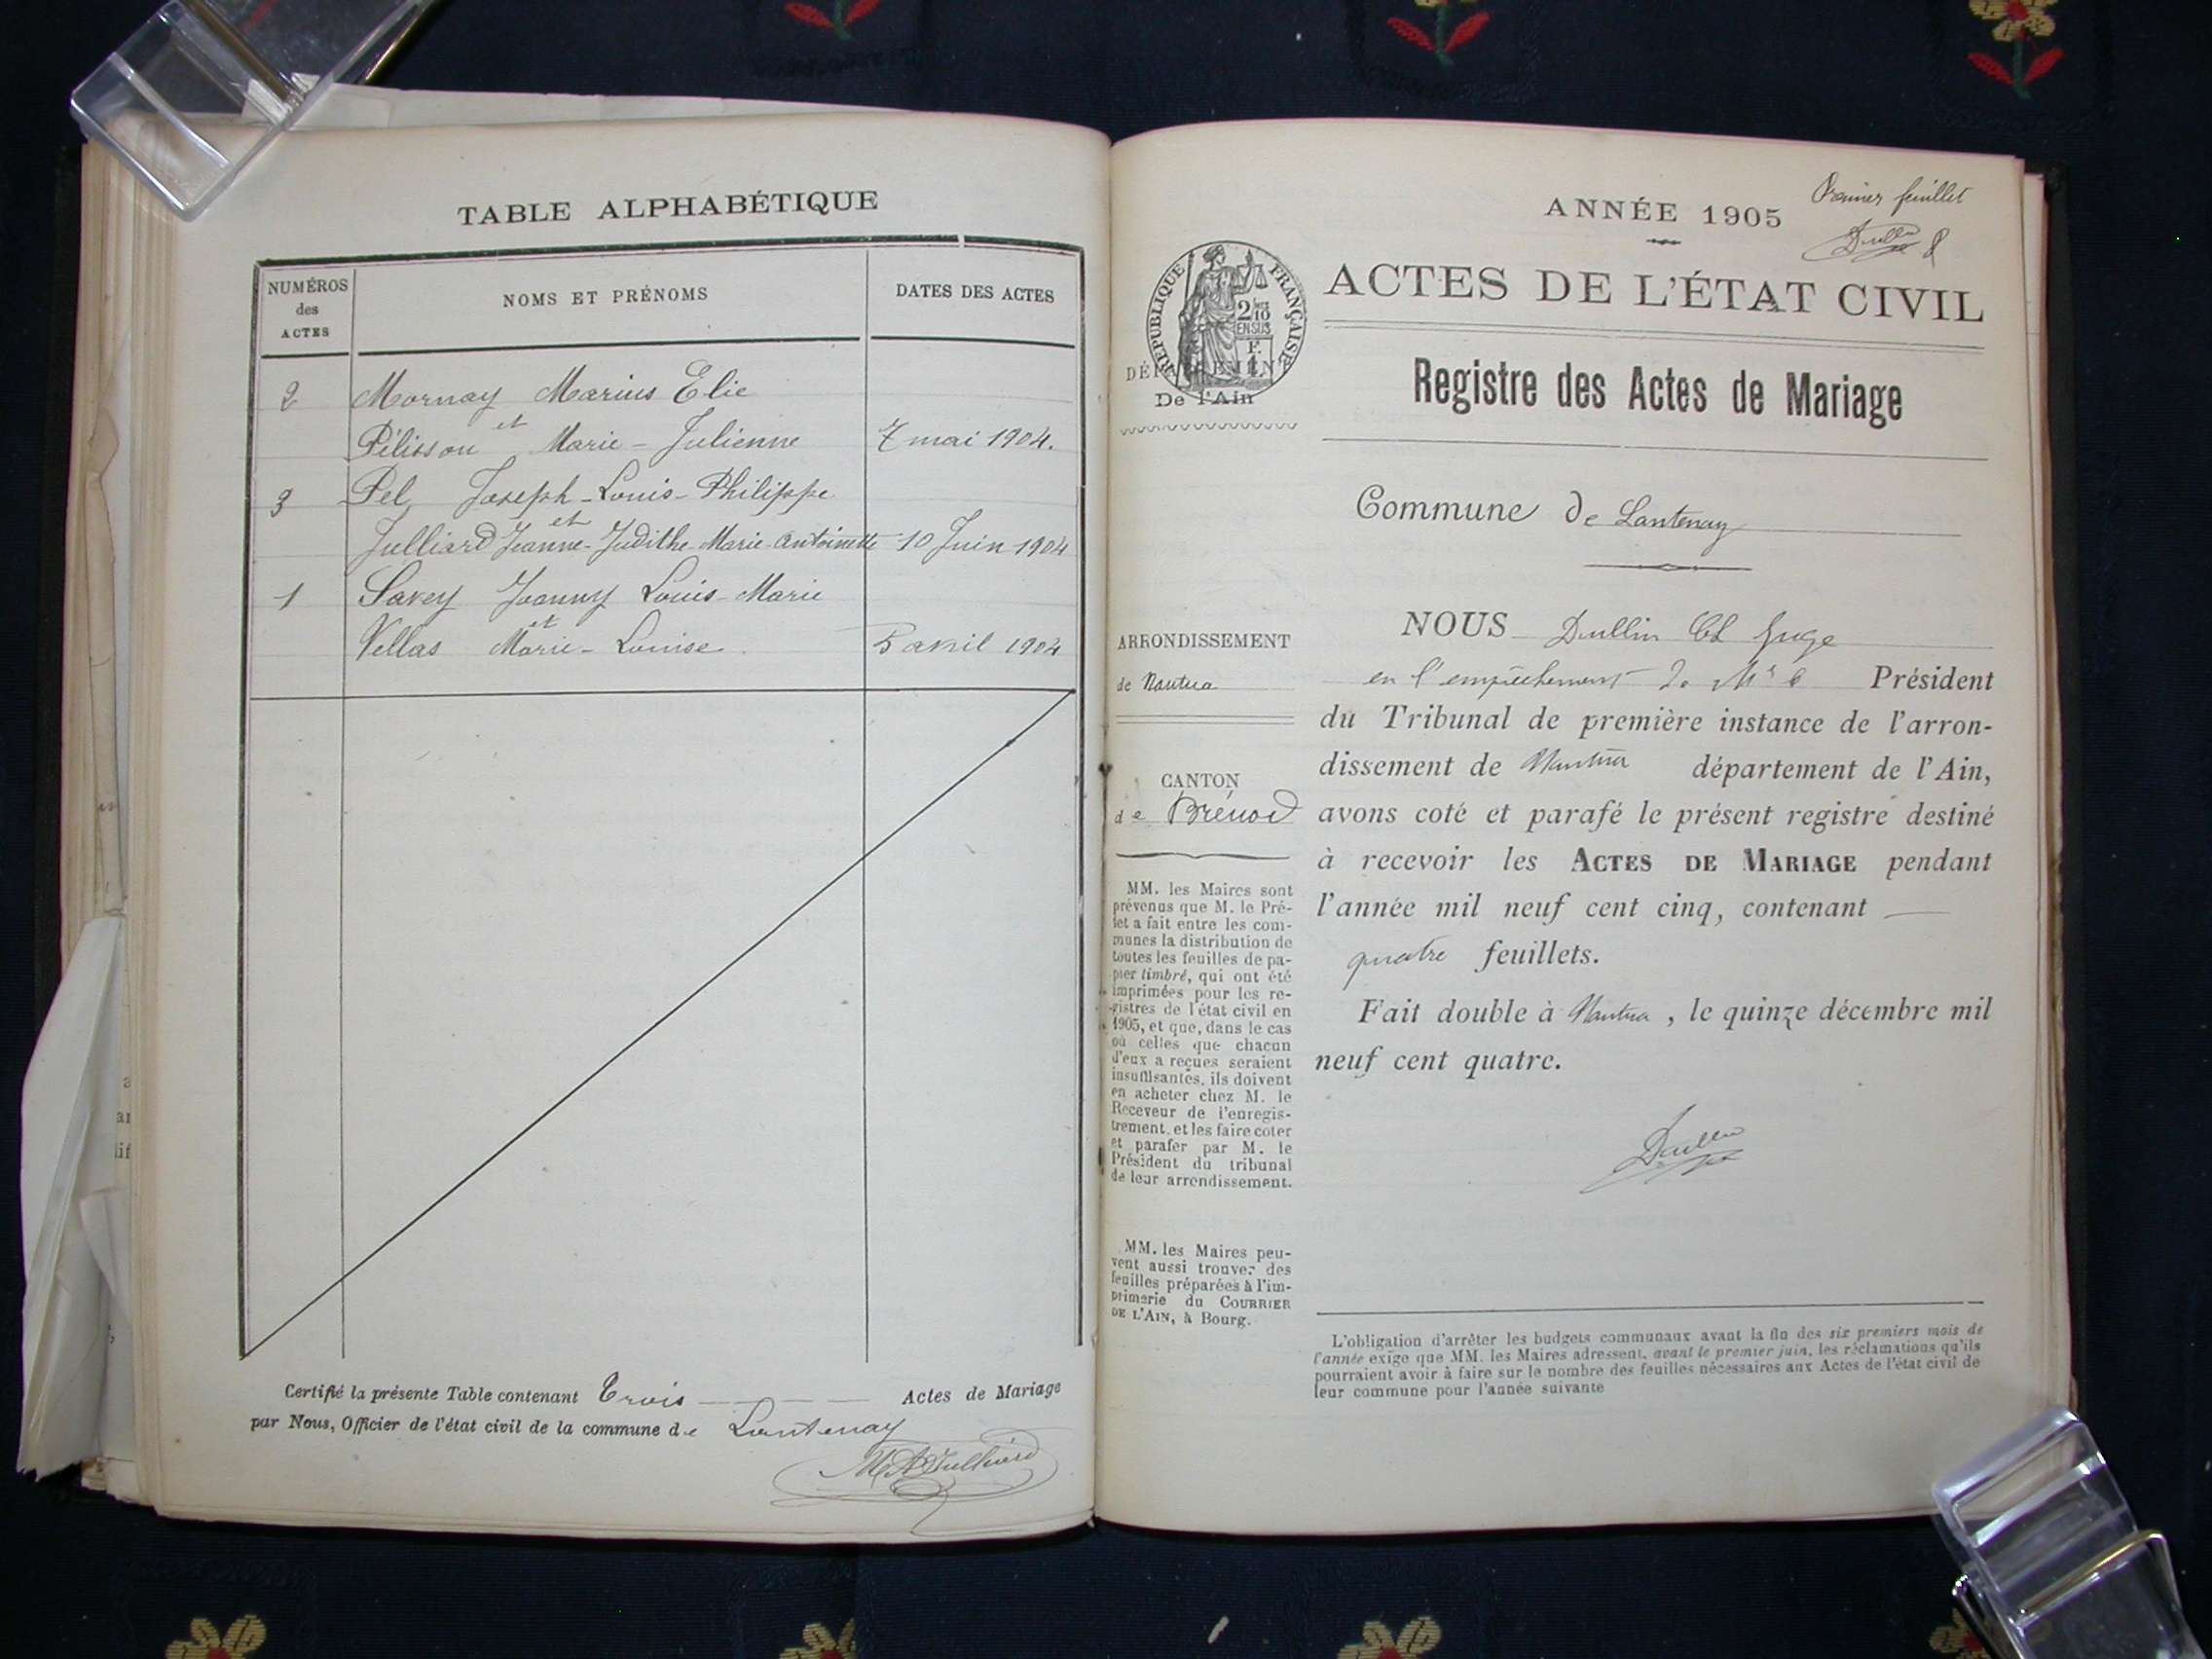 TABLE ALPHABÉTIQUE
NUMÉROS
des
ACTES
NOMS ET PRÉNOMS
DATES DES ACTES
2 Mornay Marius Elie
et
Pélisson Marie-Julienne 7 mai 1904.
3 Pel Joseph-Louis-Philippe
et
Julliard Jeanne-Judithe-Marie-Antoinette 10 Juin 1904
1 Savey Joanny Louis-Marie
et
Vellas Marie-Louise. 5 avril 1904
Certifié la présente Table contenant Trois Actes de Mariage
par Nous, Officier de l'état civil de la commune de Lantenay
Julliard
Premier feuillet
Dullin
ANNÉE 1905
ACTES DE L'ÉTAT CIVIL
RÉPUBLIQUE FRANÇAISE
2/10
EN SUS
F.
1.
DÉPARTEMENT
De l'Ain
Registre des Actes de Mariage
Commune de Lantenay
ARRONDISSEMENT
de Nantua
CANTON
de Brénod
MM. les Maires sont
prévenus que M. le Pré-
fet a fait entre les com-
munes la distribution de
toutes les feuilles de pa-
pier timbré, qui ont été
imprimées pour les re-
gistres de l'état civil en
1905, et que, dans le cas
où celles que chacun
d'eux a reçues seraient
insuffisantes, ils doivent
en acheter chez M. le
Receveur de l'enregis-
trement, et les faire coter
et parafer par M. le
Président du tribunal
de leur arrondissement.
MM. les Maires peu-
vent aussi trouver des
feuilles préparées à l'im-
primerie du COURRIER
DE L'AIN, à Bourg.
NOUS Dullin Juge
en l'empêchement de Mr Président
du Tribunal de première instance de l'arron-
dissement de Nantua département de l'Ain,
avons coté et parafé le présent registre destiné
à recevoir les ACTES DE MARIAGE pendant
l'année mil neuf cent cinq, contenant
quatre feuillets.
Fait double à Nantua, le quinze décembre mil
neuf cent quatre.
Dullin
L'obligation d'arrêter les budgets communaux avant la fin des six premiers mois de
l'année exige que MM. les Maires adressent, avant le premier juin, les réclamations qu'ils
pourraient avoir à faire sur le nombre des feuilles nécessaires aux Actes de l'état civil de
leur commune pour l'année suivante